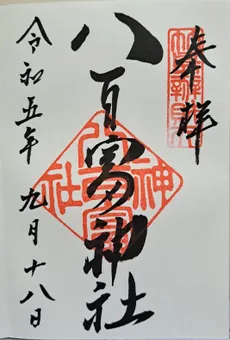 奉拝
八百富神社
令和五年 九月十八日
八百富神社